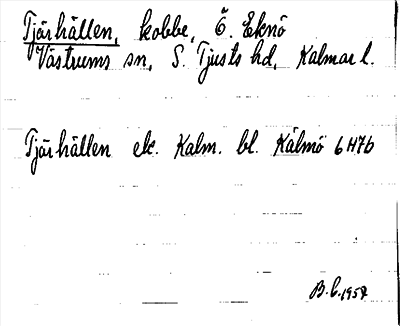 Tjärhällen, kobbe, Ö. Eknö
Västrums sn, S. Tjusts hd, Kalmar l.
Tjärhällen ek. Kalm. bl. Kälmö 6H7b
B.C. 1957